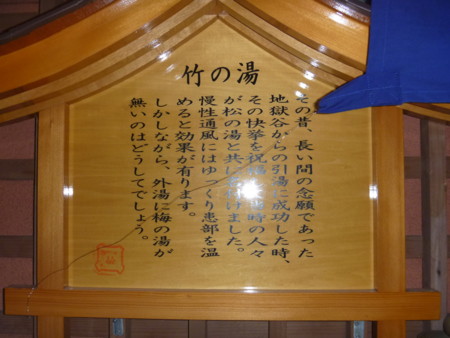 竹の湯
その昔、長い間の念願であった
地獄谷からの引湯に成功した時、
その快挙を祝
当時の人々
が松の湯と共に
付けました。
慢性通風にはゆっくり患部を温
めると効果が有ります。
しかしながら、外湯に梅の湯が
無いのはどうしてでしょう。